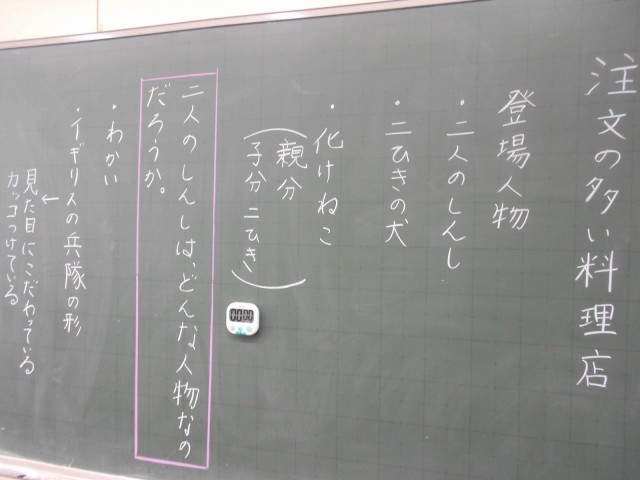 注文の多い料理店
登場人物
・二人のしんし
・二ひきの犬
・化けねこ
(親分
子分 二ひき)
二人のしんしは、どんな人物なの
だろうか。
・わかい
・イギリスの兵隊の形
←
見た目にこだわっている
カッコつけている
00:00